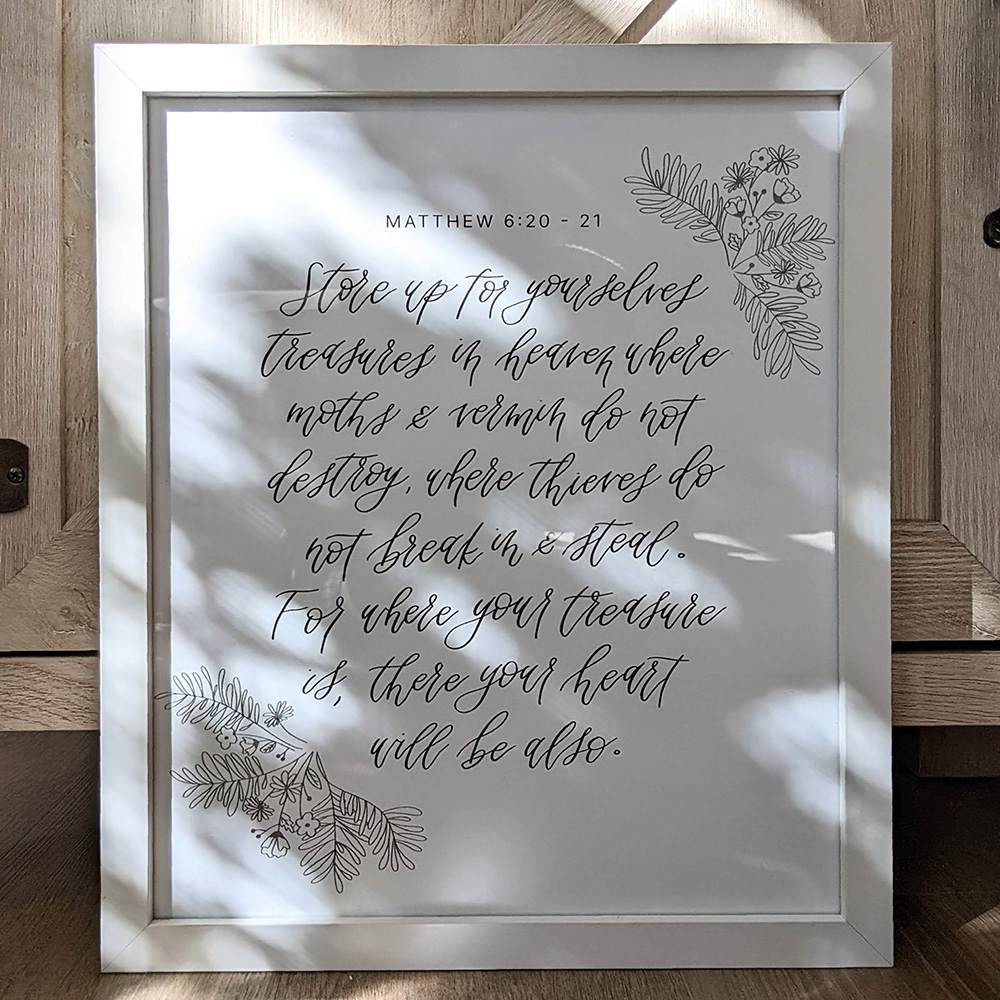 MATTHEW 6:20 - 21
Store up for yourselves
treasures in heaven where
moths & vermin do not
destroy, where thieves do
not break in & steal.
For where your treasure
is, there your heart
will be also.